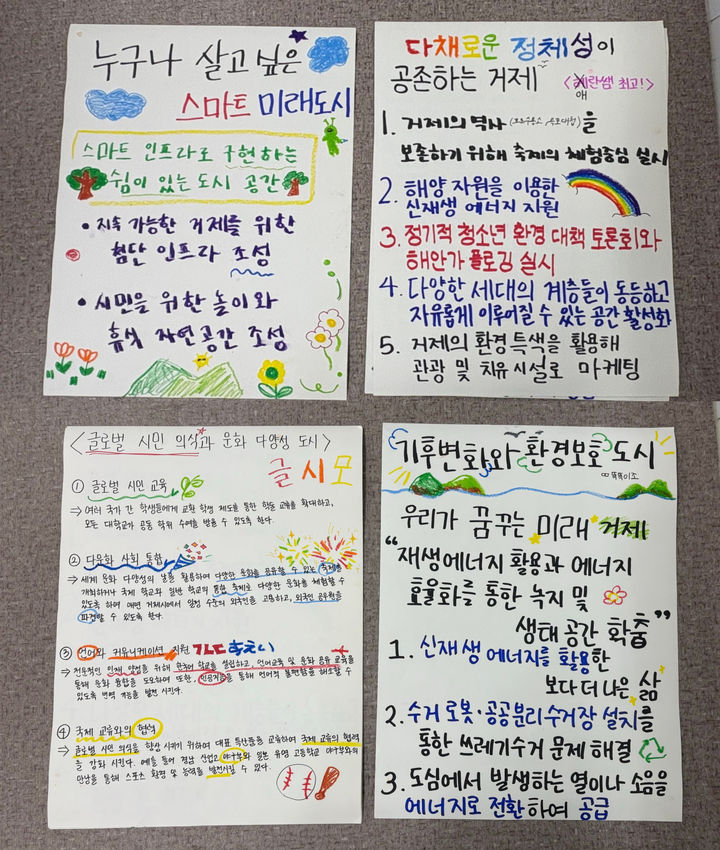 누구나 살고싶은
스마트 미래도시
스마트 인프라로 구현하는
쉼이 있는 도시 공간
• 지속 가능한 거제를 위한
첨단 인프라 조성
• 시민을 위한 놀이와
휴식 자연공간 조성
다채로운 정체성이
공존하는 거제
<혜란쌤 최고!>
애
1. 거제의 역사(포로수용소, 옥포대첩)을
보존하기 위해 축제의 체험중심 실시
2. 해양 자원을 이용한
신재생 에너지 지원
3. 정기적 청소년 환경 대책 토론회와
해안가 플로깅 실시
4. 다양한 세대의 계층들이 동등하고
자유롭게 이루어질 수 있는 공간 활성화
5. 거제의 환경 특색을 활용해
관광 및 치유 시설로 마케팅
<글로벌 시민 의식과 문화 다양성 도시>
글시모
① 글로벌 시민 교육
⇒ 여러 국가 간 학생들에게 교환 학생 제도를 통한 학술 교육을 확대하고,
모든 대학교가 공동 학위 수여를 받을 수 있도록 한다.
② 다문화 사회 통합
⇒ 세계 문화 다양성의 날을 활용하여 다양한 문화를 공유할 수 있는 축제를
개최하거나 국제 학교와 일반 학교의 통합 축제로 다양한 문화를 체험할 수
있도록 하며 매년 거제시에서 일정 수준의 외국인을 고용하고, 외국인 공무원을
파견할 수 있도록 한다.
③ 언어와 커뮤니케이션 지원
⇒ 전문적인 인재 양성을 위해 한국어 학교를 설립하고, 언어교육 및 문화 공유 교육을
통해 문화 통합을 도모하며 또한, 인공지능을 통해 언어적 불편함을 해소할 수
있도록 번역 기능을 발전 시킨다.
④ 국제 교류와의 협력
⇒ 글로벌 시민 의식을 향상 시키기 위하여 대표 특산품을 교류하여 국제 교류의 협력
을 강화 시킨다. 예를 들어 경남 산업고 야구부와 일본 유명 고등학교 야구부와의
만남을 통해 스포츠 환경 및 능력을 발전시킬 수 있다.
기후변화와 환경보호 도시
우리가 꿈꾸는 미래 거제
"재생에너지 활용과 에너지
효율화를 통한 녹지 및
생태 공간 확충"
1. 신재생 에너지를 활용한
보다 더 나은 삶
2. 수거 로봇·공공분리수거장 설치를
통한 쓰레기수거 문제 해결
3. 도심에서 발생하는 열이나 소음을
에너지로 전환하여 공급